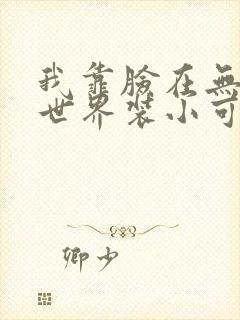 我靠臉在無
世界裝小可
卿少